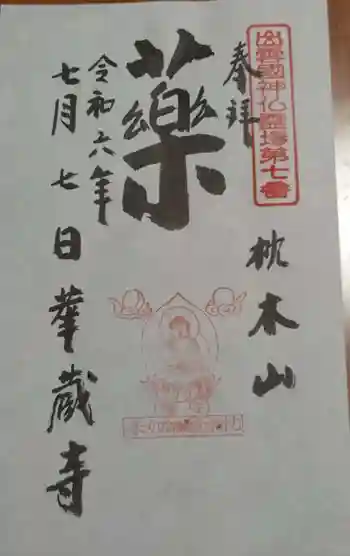 出雲國神仏霊場第七番
奉拝
枕木山
藥
令和六年
七月七日
華蔵寺